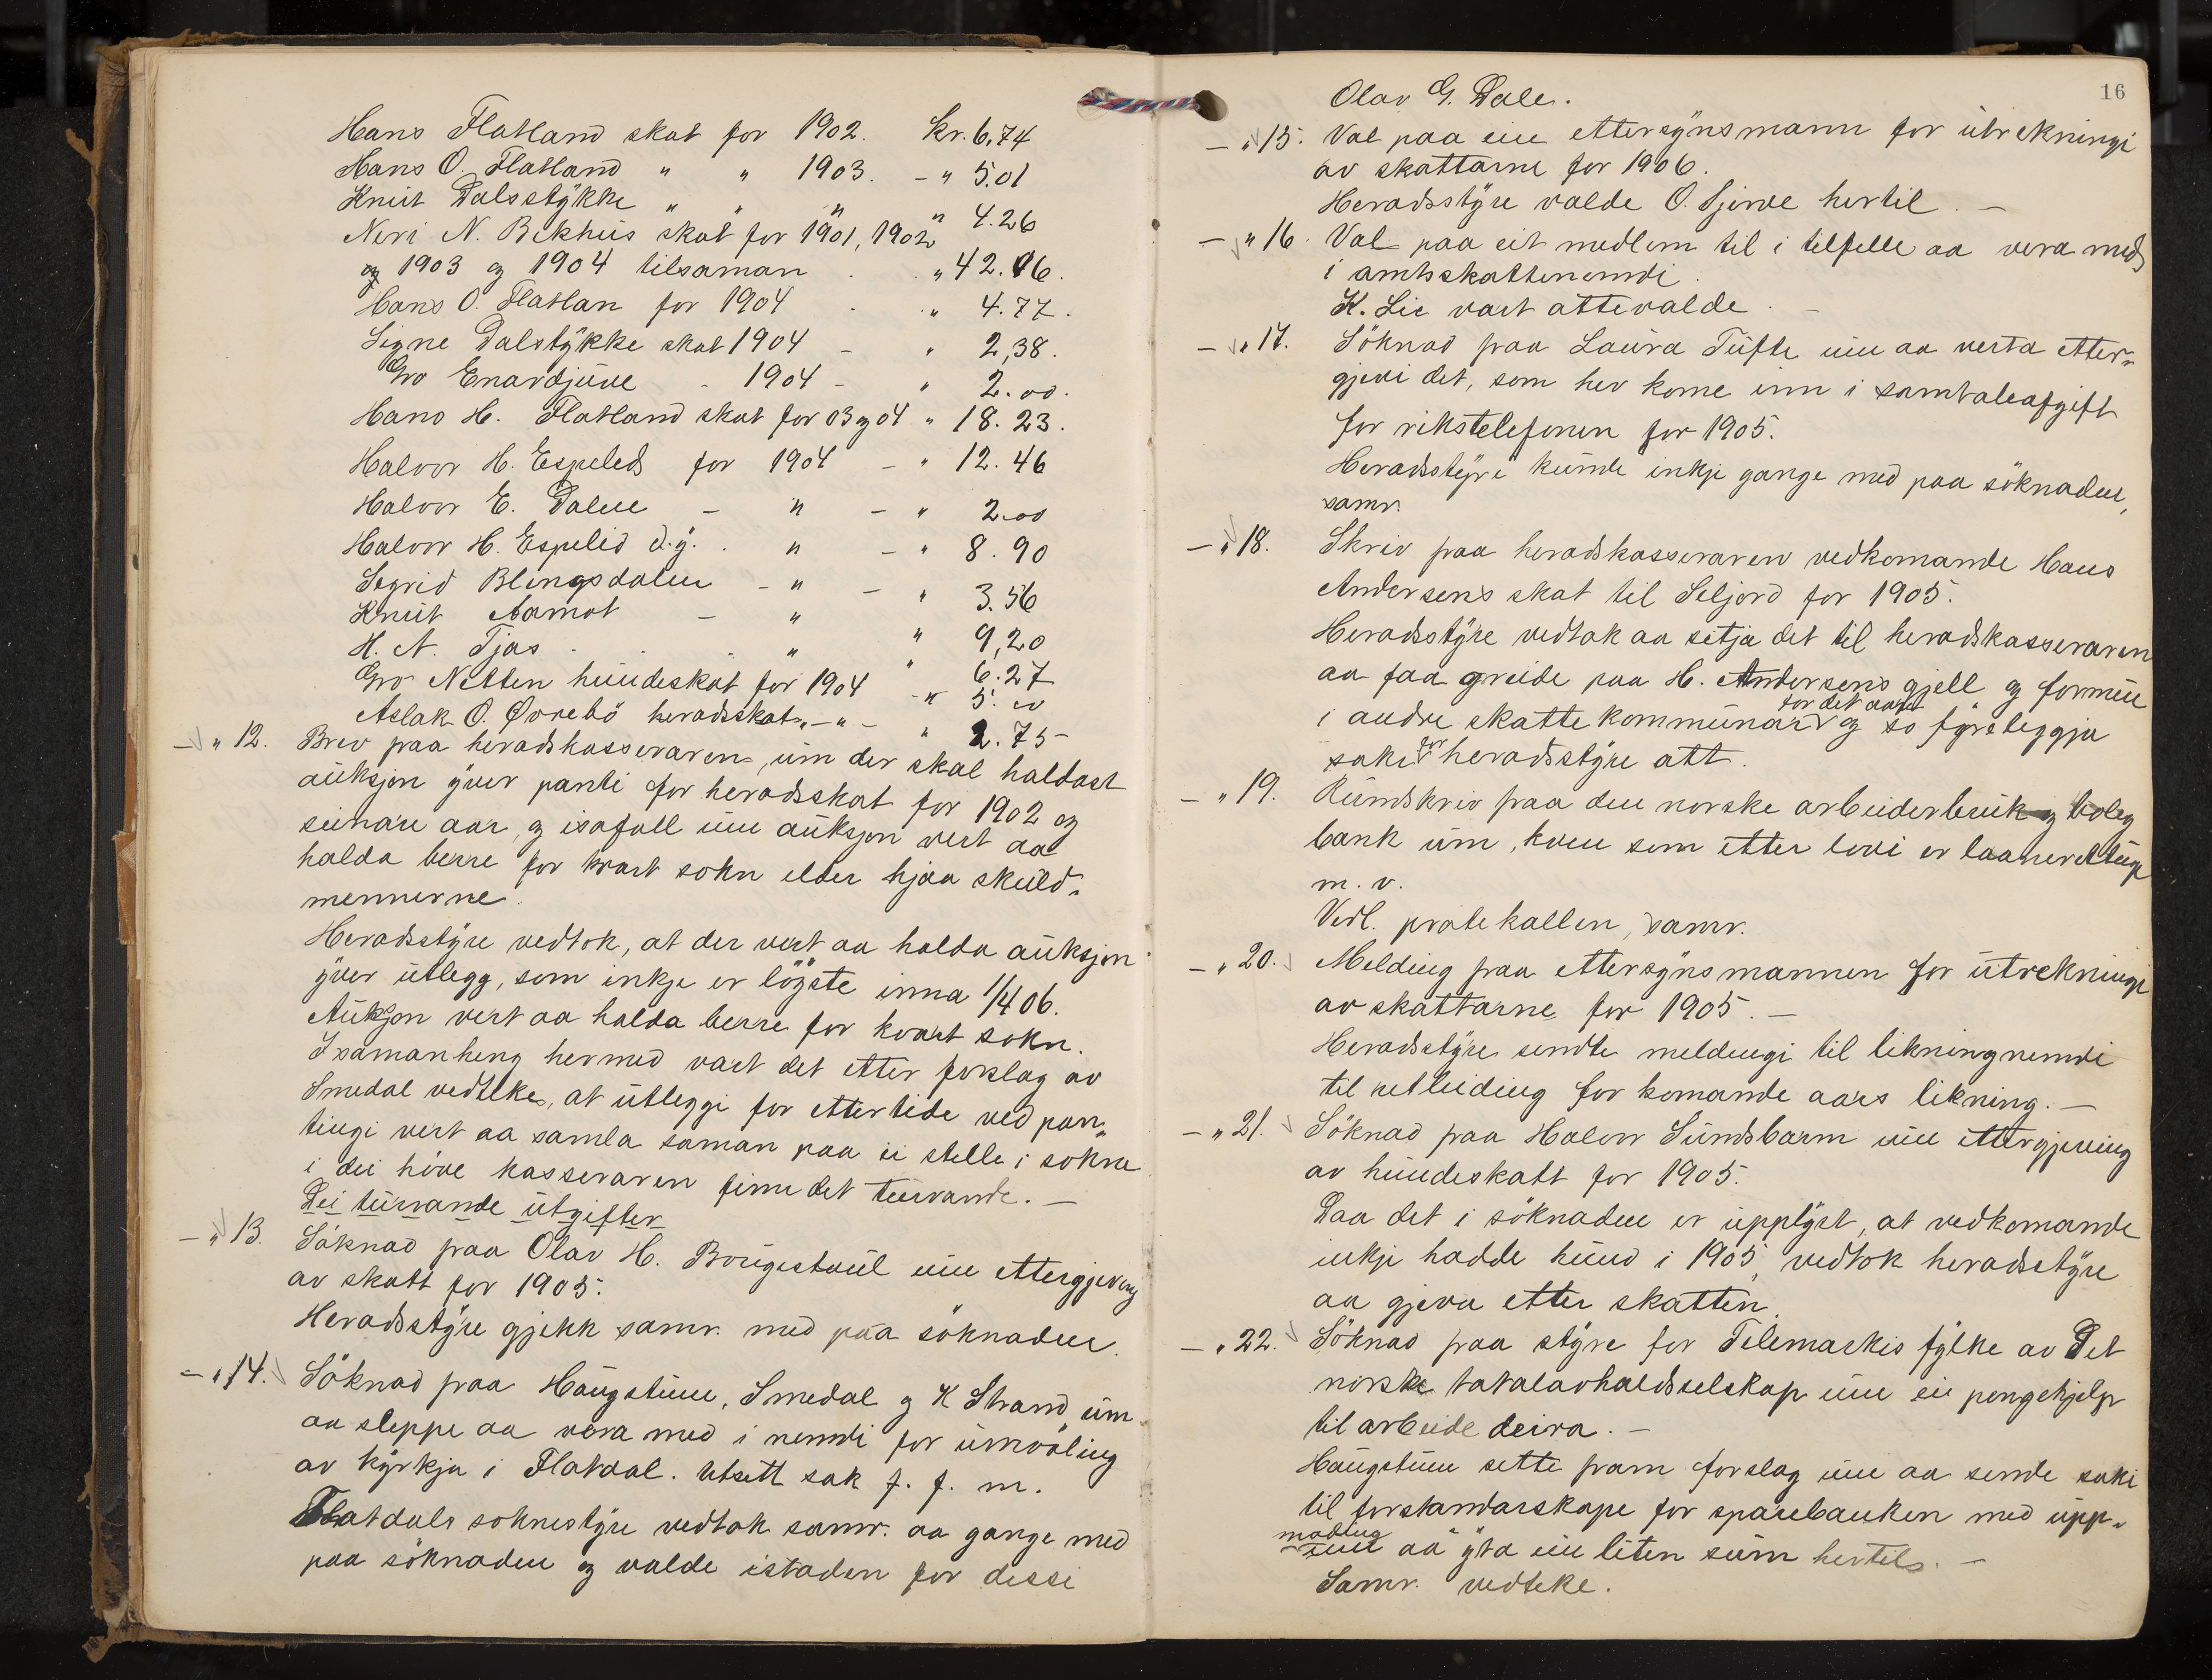 Hans Flatland skat for 1902. kr. 6,74
Hans O. Flatland " " 1903. - " 5.01
Knut Dalsstykke " " " " 4.26
Neri N. Bekhus skat for 1901, 1902
og 1903 og 1904 tilsaman . . " 42.16.
Hans O. Flatlan for 1904 . . " 4.77.
Signe Dalstykke skat 1904 - " 2,38.
Gro Enardjuve - 1904 - " 2.00.
Hans H. Flatland skat for 03 og 04 " 18.23.
Halvor H. Espeled for 1904 - " 12.46
Halvor E. Dalen - " - " 2.00
Halvor H. Espelid d.y. . " - " 8.90
Sigrid Blengsdalen - " - " 3.56
Knut Aamot - " " 9,20
H. N. Tjas . . . " " 6.27
Gro Netten hundeskat for 1904 - " 5.00
Aslak O. Øvrebö heradsskat " - " - " 2.75
- " 12. Brev paa heradskasseraren, um der skal haldast
auksjon yver panti for heradsskat for 1902 og
seinare aar, og isofall um auksjon vert aa
halda berre for kvart sokn elder hjaa skuld-
mennerne.
Heradsstyre vedtok, at der vert aa halda auksjon
yver utlegg, som inkje er löyste inna 1/4 06.
Auksjon vert aa halda berre for kvart sokn.
I samanheng hermed vart det etter forslag av
Smedal vedteke, at utleggi for ettertide ved pan-
tingi vert aa samla saman paa ei stelle i sokne
i dei höve kasseraren finn det turvande. -
Dei turvande utgifter
- " 13. Söknad paa Olav H. Bougestaul um ettergjeving
av skatt for 1905.
Heradsstyre gjekk samr. med paa söknaden.
- " 14. Söknad paa Haugstuen, Smedal og K Strand um
aa sleppe aa vera med i nemdi for umvöling
av kyrkja i Flatdal. Utsett sak f. f. m.
Flatdals soknestyre vedtok samr. aa gange med
paa söknaden og valde istaden for dessi
16
Olav G. Dale.
- " 15. Val paa ein ettersynsmann for utrekningi
av skattarne for 1906.
Heradsstyre valde O. Sjerve hertil. -
- " 16. Val paa eit medlem til i tilfelle aa vera med
i amtsskattenemdi.
K. Lie vart attevalde. -
- " 17. Söknad paa Laura Tufte um aa verta etter-
gjevi det, som hev kome inn i samtaleafgift
for rikstelefonen for 1905.
Heradsstyre kunde inkje gange med paa söknaden,
samr.
- " 18. Skriv paa heradskasseraren vedkomande Hans
Andersens skat til Seljord for 1905.
Heradsstyre vedtok aa setja det til heradskasseraren
aa faa greide paa H. Andersens gjell og formue
for det aaret
i andre skattekommunar og so fyreleggja
saki for heradsstyre att.
- " 19. Rundskriv paa den norske arbeiderbruk og bolig
bank um, kven som etter lovi er laaneretuge
m. v.
Vedl. protekallen, samr.
- " 20. Melding paa ettersynsmannen for utrekningi
av skattarne for 1905. -
Heradsstyre sendte meldingi til likningnemdi
til retleiding for komande aars likning. -
- " 21. Söknad paa Halvor Sundsbarm um ettergjeving
av hundeskatt for 1905.
Daa det i söknaden er upplyst, at vedkomande
inkje hadde hund i 1905, vedtok heradsstyre
aa gjeva etter skatten.
- " 22. Söknad paa styre for Telemarkis fylke av Det
norske totalavholdsselskap um ein pengehjelp
til arbeide deira. -
Haugstuen sette fram forslag um aa sende saki
til forstandarskape for sparebanken med upp-
moding
um aa yta ein liten sum hertil. -
Samr. vedteke.